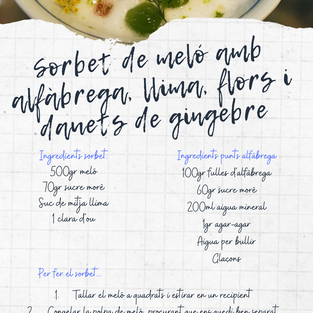 sorbet de meló amb
alfàbrega, llima, flors i
dauets de gingebre
Ingredients sorbet
500gr meló
70gr sucre moré
Suc de mitja llima
1 clara d'ou
Ingredients punts alfàbrega
100gr fulles d'alfàbrega
60gr sucre moré
200ml aigua mineral
1gr agar-agar
Aigua per bullir
Glaçons
Per fer el sorbet...
1. Tallar el meló a quadrats i estirar en un recipient
2. Congelar la polpa de meló, procurant que ens quedi ben separat